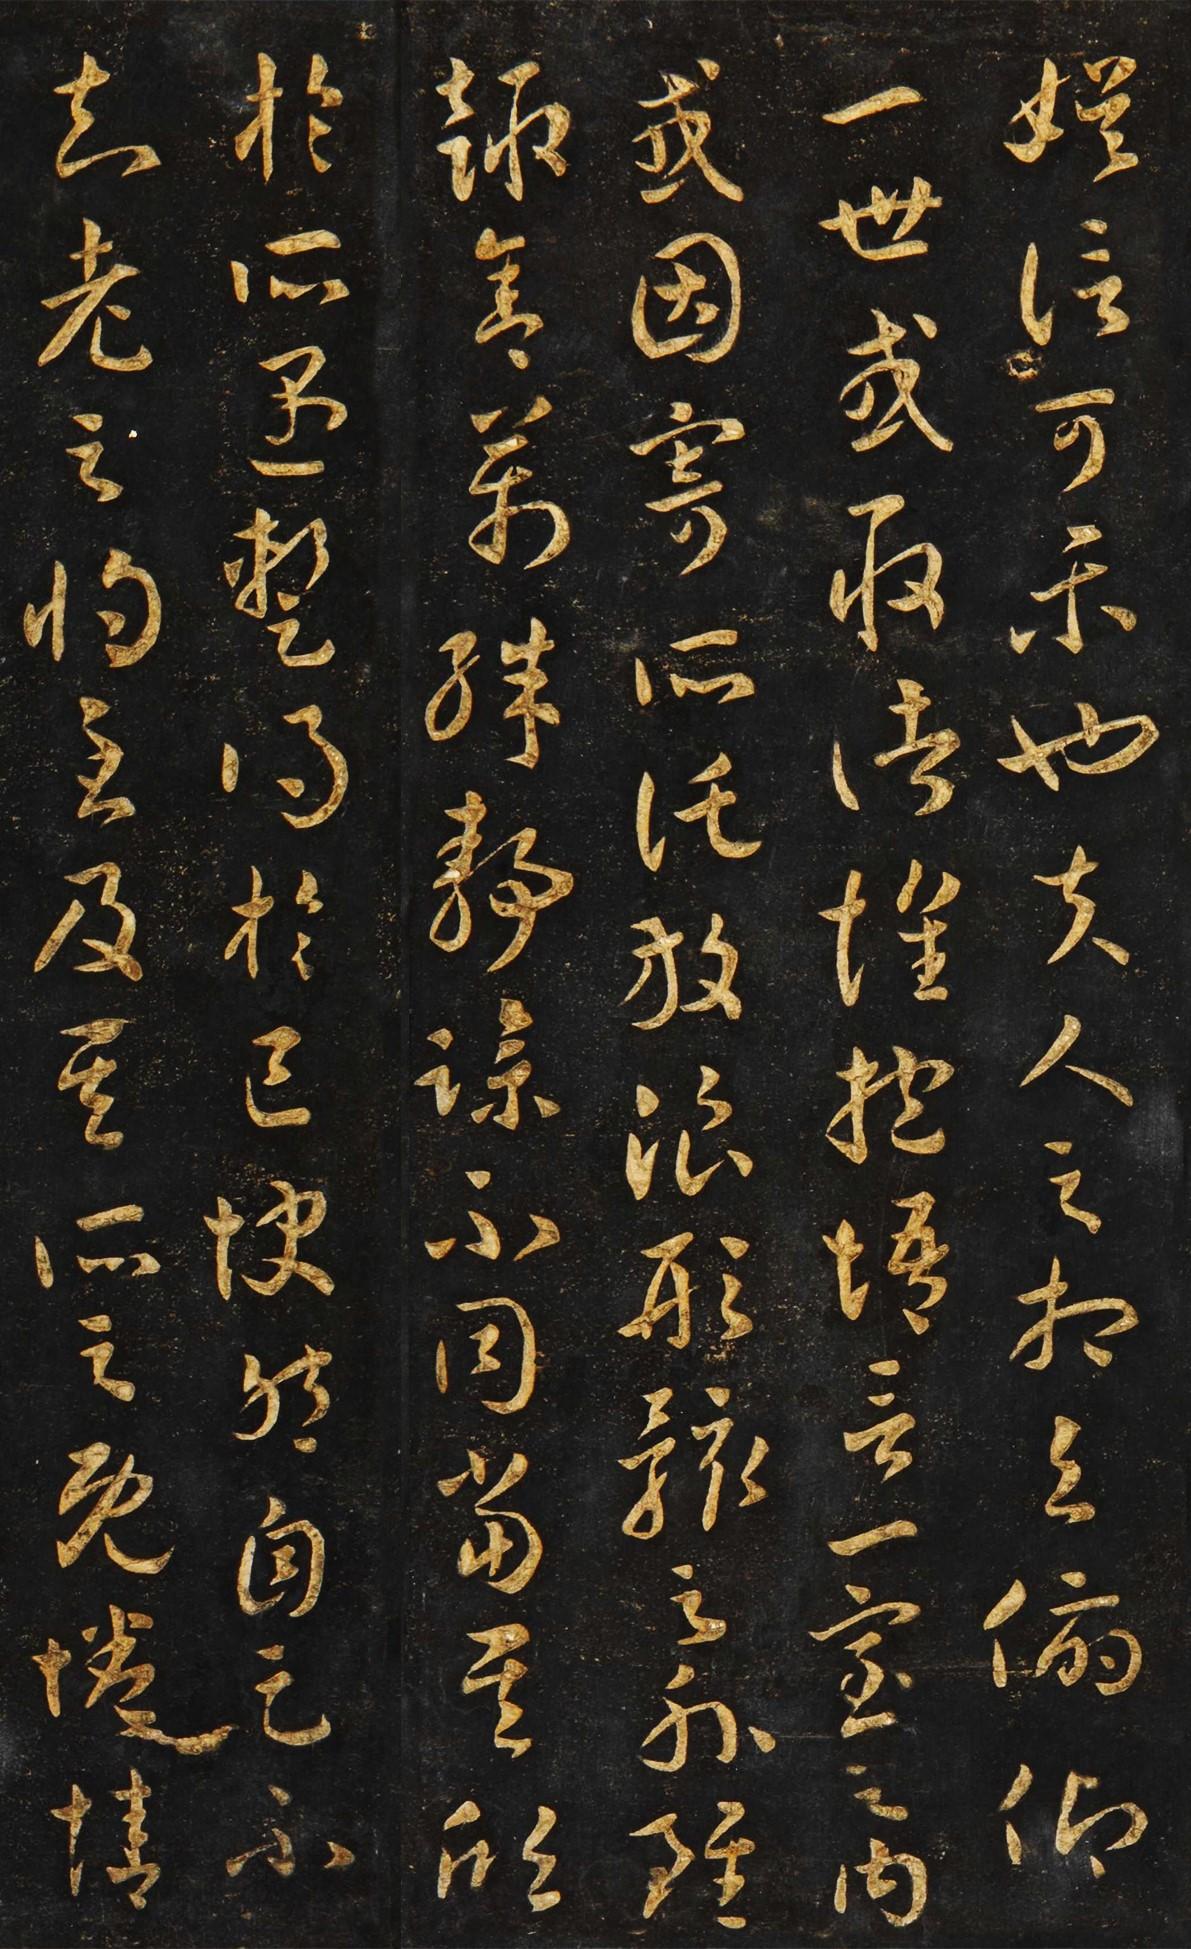 娛信可樂也夫人之相與俯仰
一世或取諸懷抱悟言一室之內
或因寄所託放浪形骸之外雖
趣舍萬殊靜躁不同當其欣
於所遇暫得於己快然自足不
知老之將至及其所之既惓情